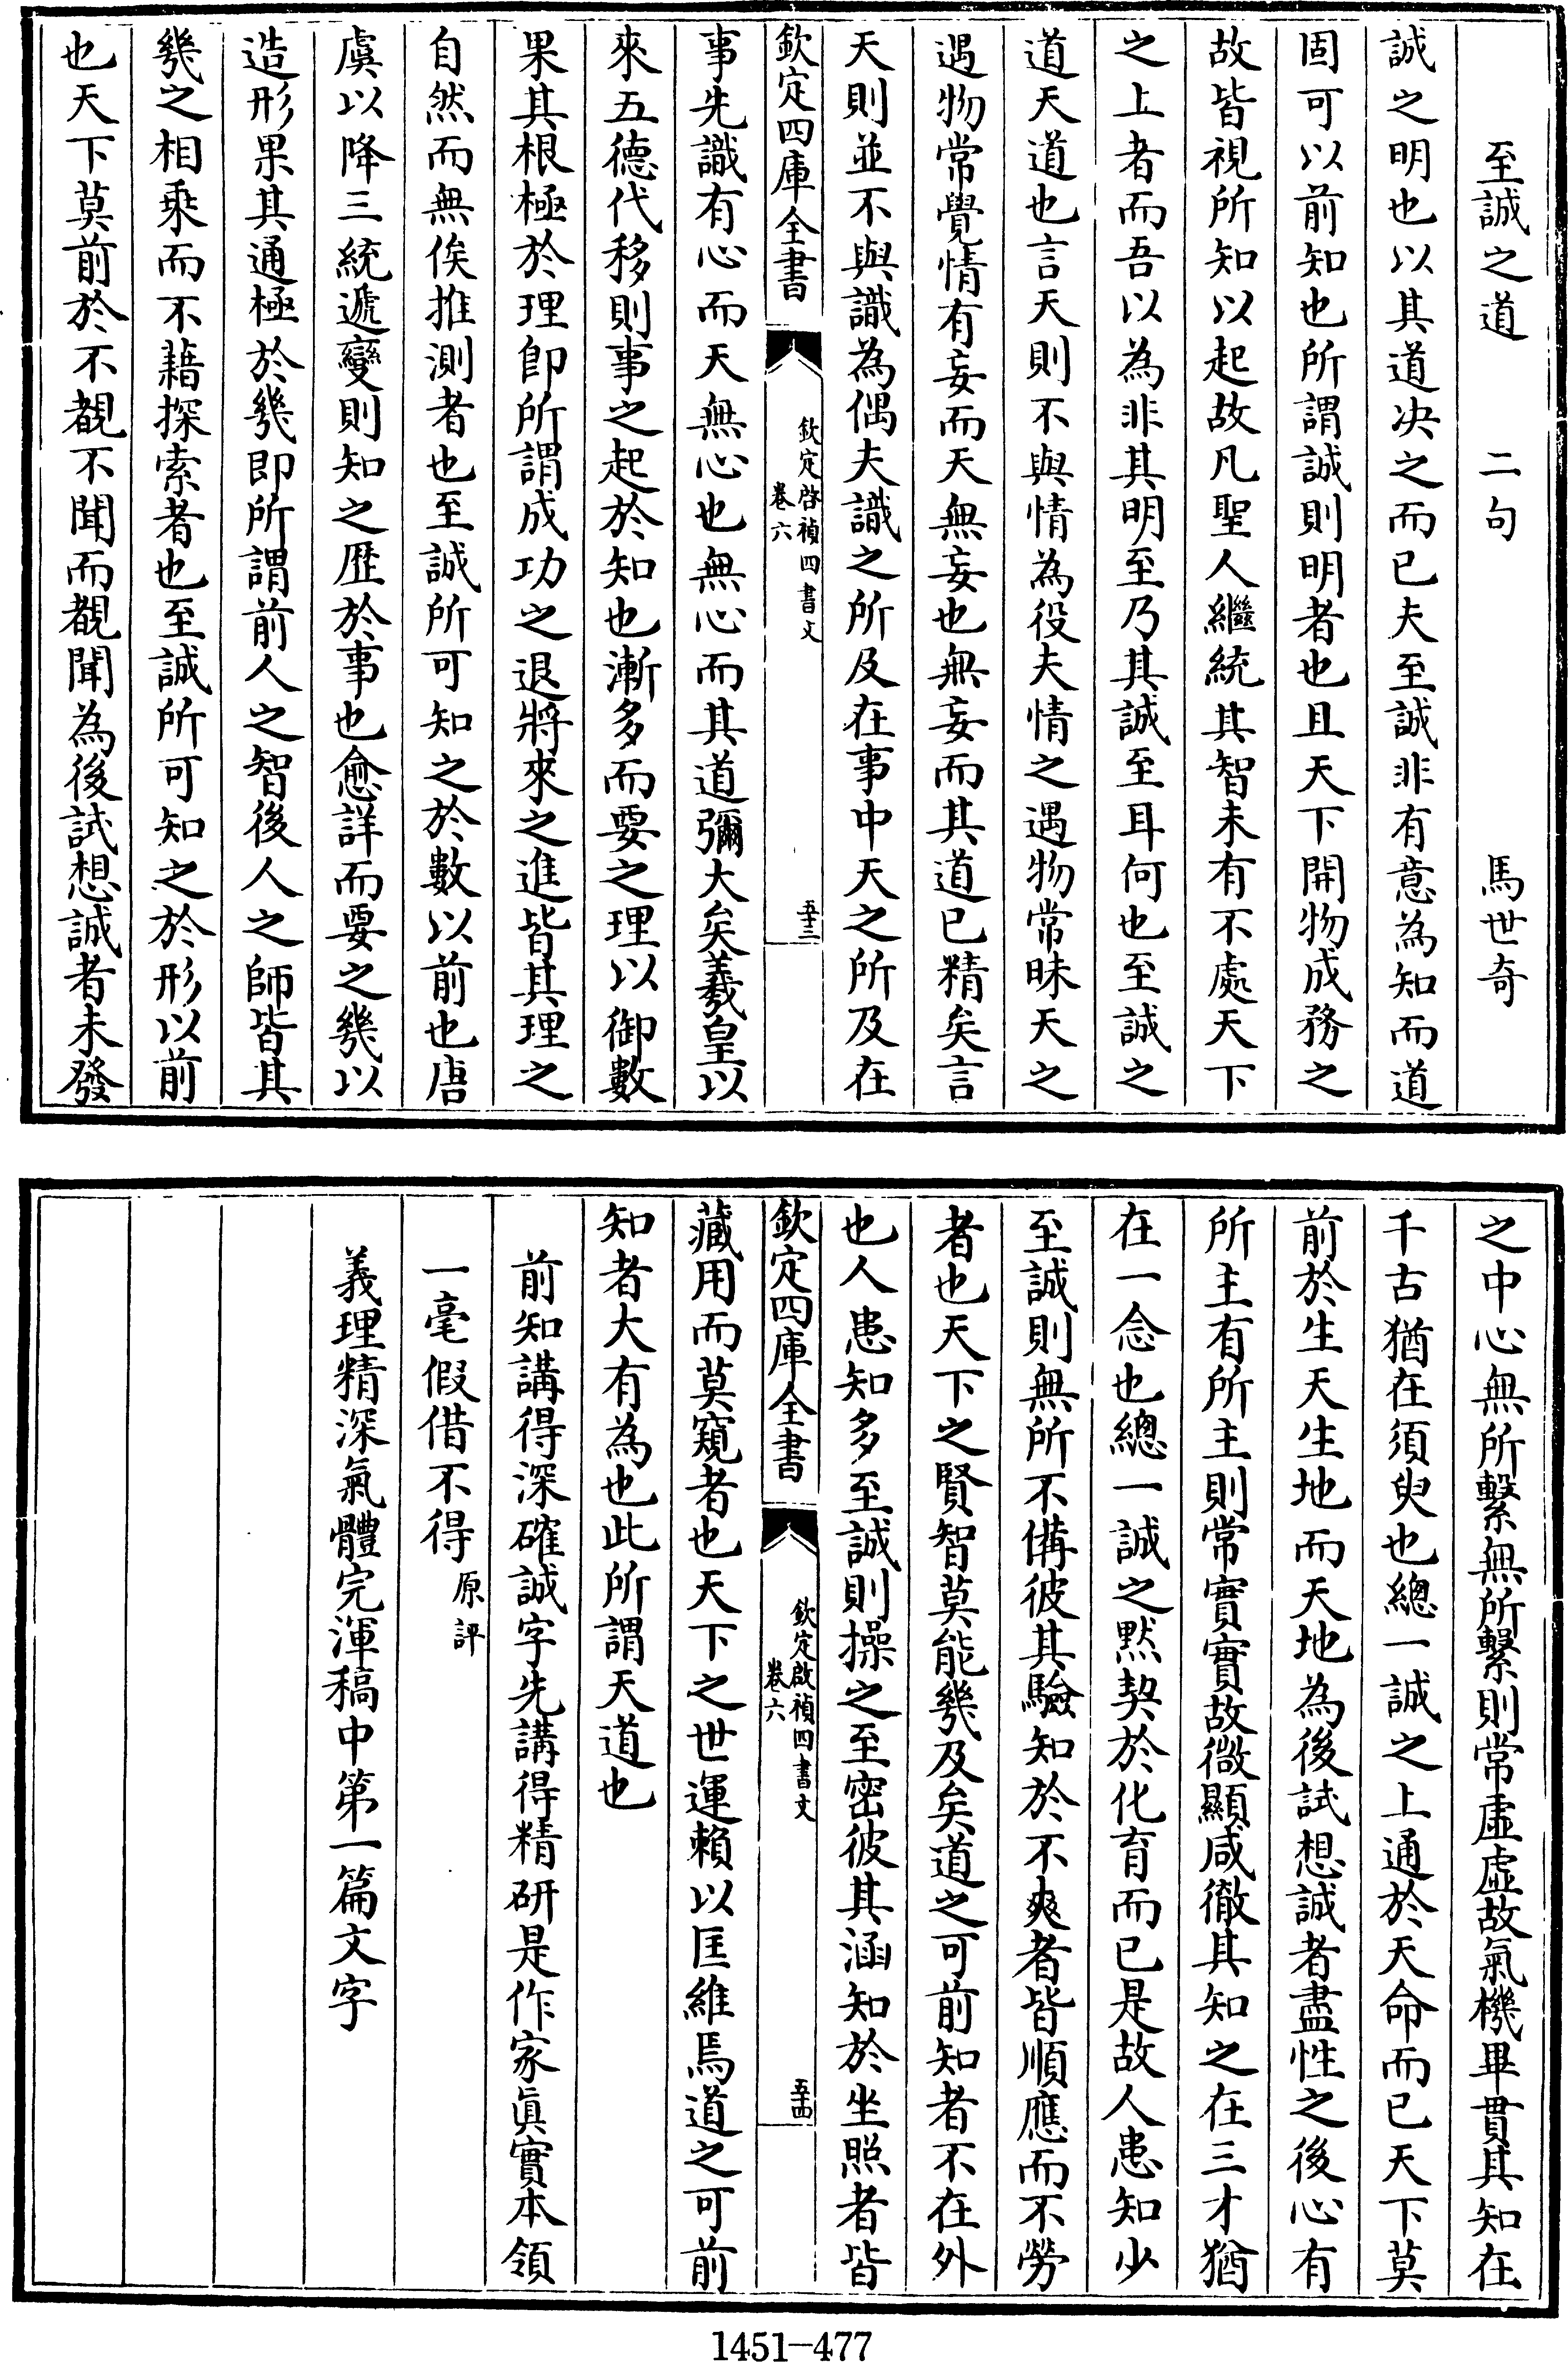 至誠之道　二句　馬世奇
誠之明也以其道决之而已夫至誠非有意為知而道
固可以前知也所謂誠則明者也且天下開物成務之
故皆視所知以起故凡聖人繼統其智未有不處天下
之上者而吾以為非其明至乃其誠至耳何也至誠之
道天道也言天則不與情為役夫情之遇物常昧天之
遇物常覺情有妄而天無妄也無妄而其道已精矣言
天則並不與識為偶夫識之所及在事中天之所及在
欽定四庫全書
欽定啓禎四書文
卷六
五十三
事先識有心而天無心也無心而其道彌大矣羲皇以
來五德代移則事之起於知也漸多而要之理以御數
果其根極於理卽所謂成功之退將來之進皆其理之
自然而無俟推測者也至誠所可知之於數以前也唐
虞以降三統遞變則知之歷於事也愈詳而要之幾以
造形果其通極於幾即所謂前人之智後人之師皆其
幾之相乘而不藉探索者也至誠所可知之於形以前
也天下莫前於不覩不聞而覩聞為後試想誠者未發
之中心無所繫無所繫則常虛虛故氣機畢貫其知在
千古猶在須臾也總一誠之上通於天命而已天下莫
前於生天生地而天地為後試想誠者盡性之後心有
所主有所主則常實實故微顯咸徹其知之在三才猶
在一念也總一誠之默契於化育而已是故人患知少
至誠則無所不備彼其驗知於不爽者皆順應而不勞
者也天下之賢智莫能幾及矣道之可前知者不在外
也人患知多至誠則操之至密彼其涵知於坐照者皆
欽定四庫全書
欽定啟禎四書文
卷六
五十四
藏用而莫窺者也天下之世運賴以匡維焉道之可前
知者大有為也此所謂天道也
前知講得深確誠字先講得精研是作家眞實本領
一毫假借不得原評
義理精深氣體完渾稿中第一篇文字
1451-477